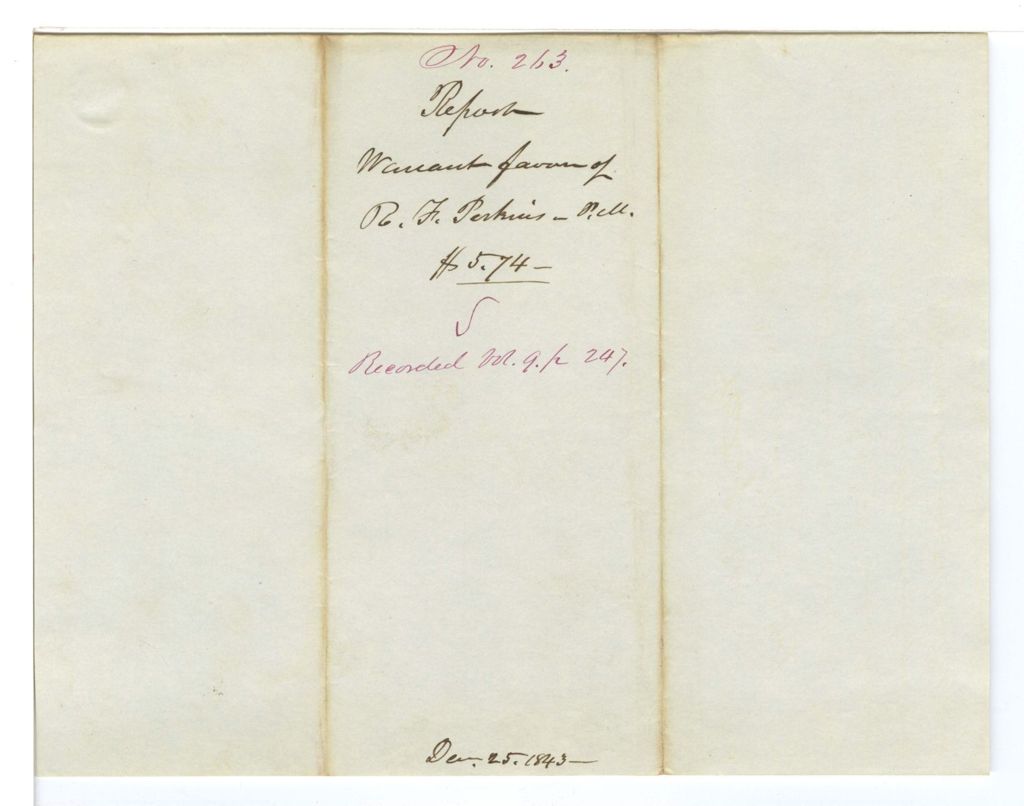 No. 263.
Report
Warrant favor of
R. F. Perkins - P.M.
$ 5.74 -
Recorded Vol. 9. p 247.
Dec. 25. 1843 -